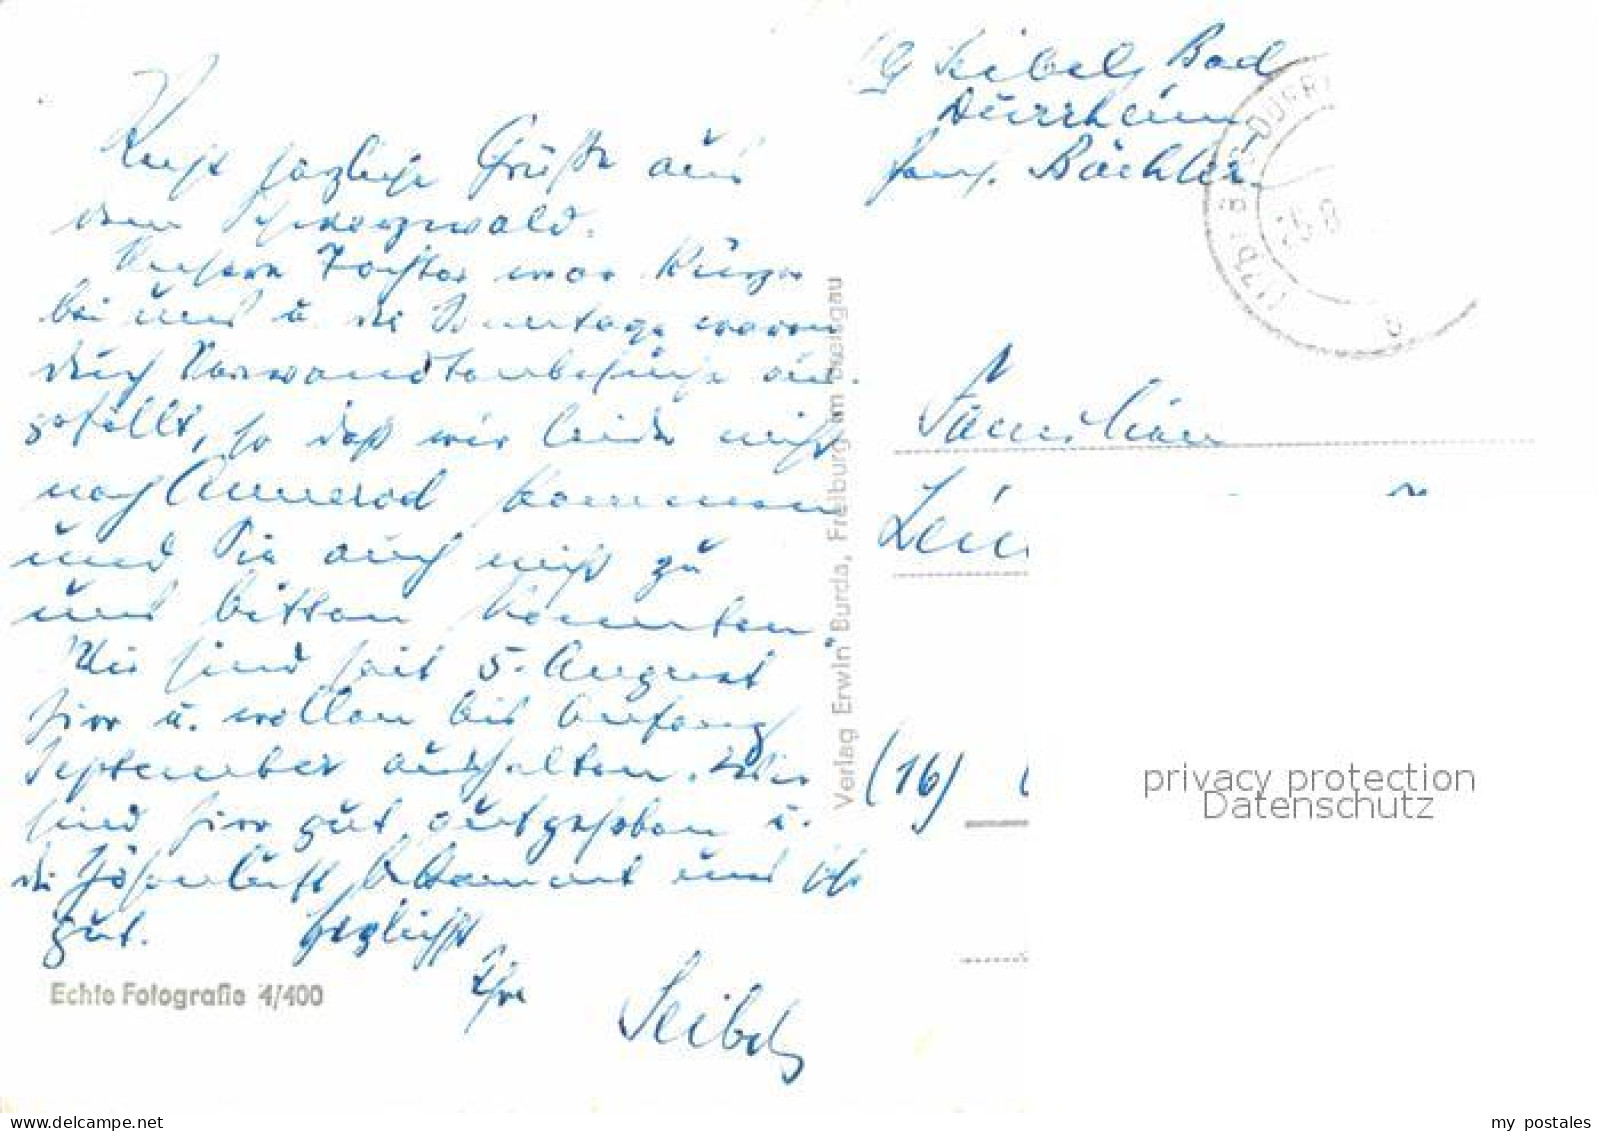 Recht herzliche Grüße aus
dem Schwarzwald.
Unsere Tochter war kürzer
bei uns u. die Sonntage waren
durch Verwandtenbesuche aus-
gefüllt, so daß wir leider nicht
nach Annerod kommen
und Sie auch nicht zu
uns bitten konnten.
Wir sind seit 5. August
hier u. wollen bis Anfang
September aushalten. Wir
sind hier gut aufgehoben u.
die Höhenluft bekommt uns
gut. Herzlichst
Ihre
Seibels
Echte Fotografie 4/400
Verlag Erwin Burda, Freiburg im Breisgau
Seibels Bad
Dürrheim,
Haus Bächler
BAD DÜRR
Familien
(16)
privacy protection
Datenschutz
www.delcampe.net
my_postales